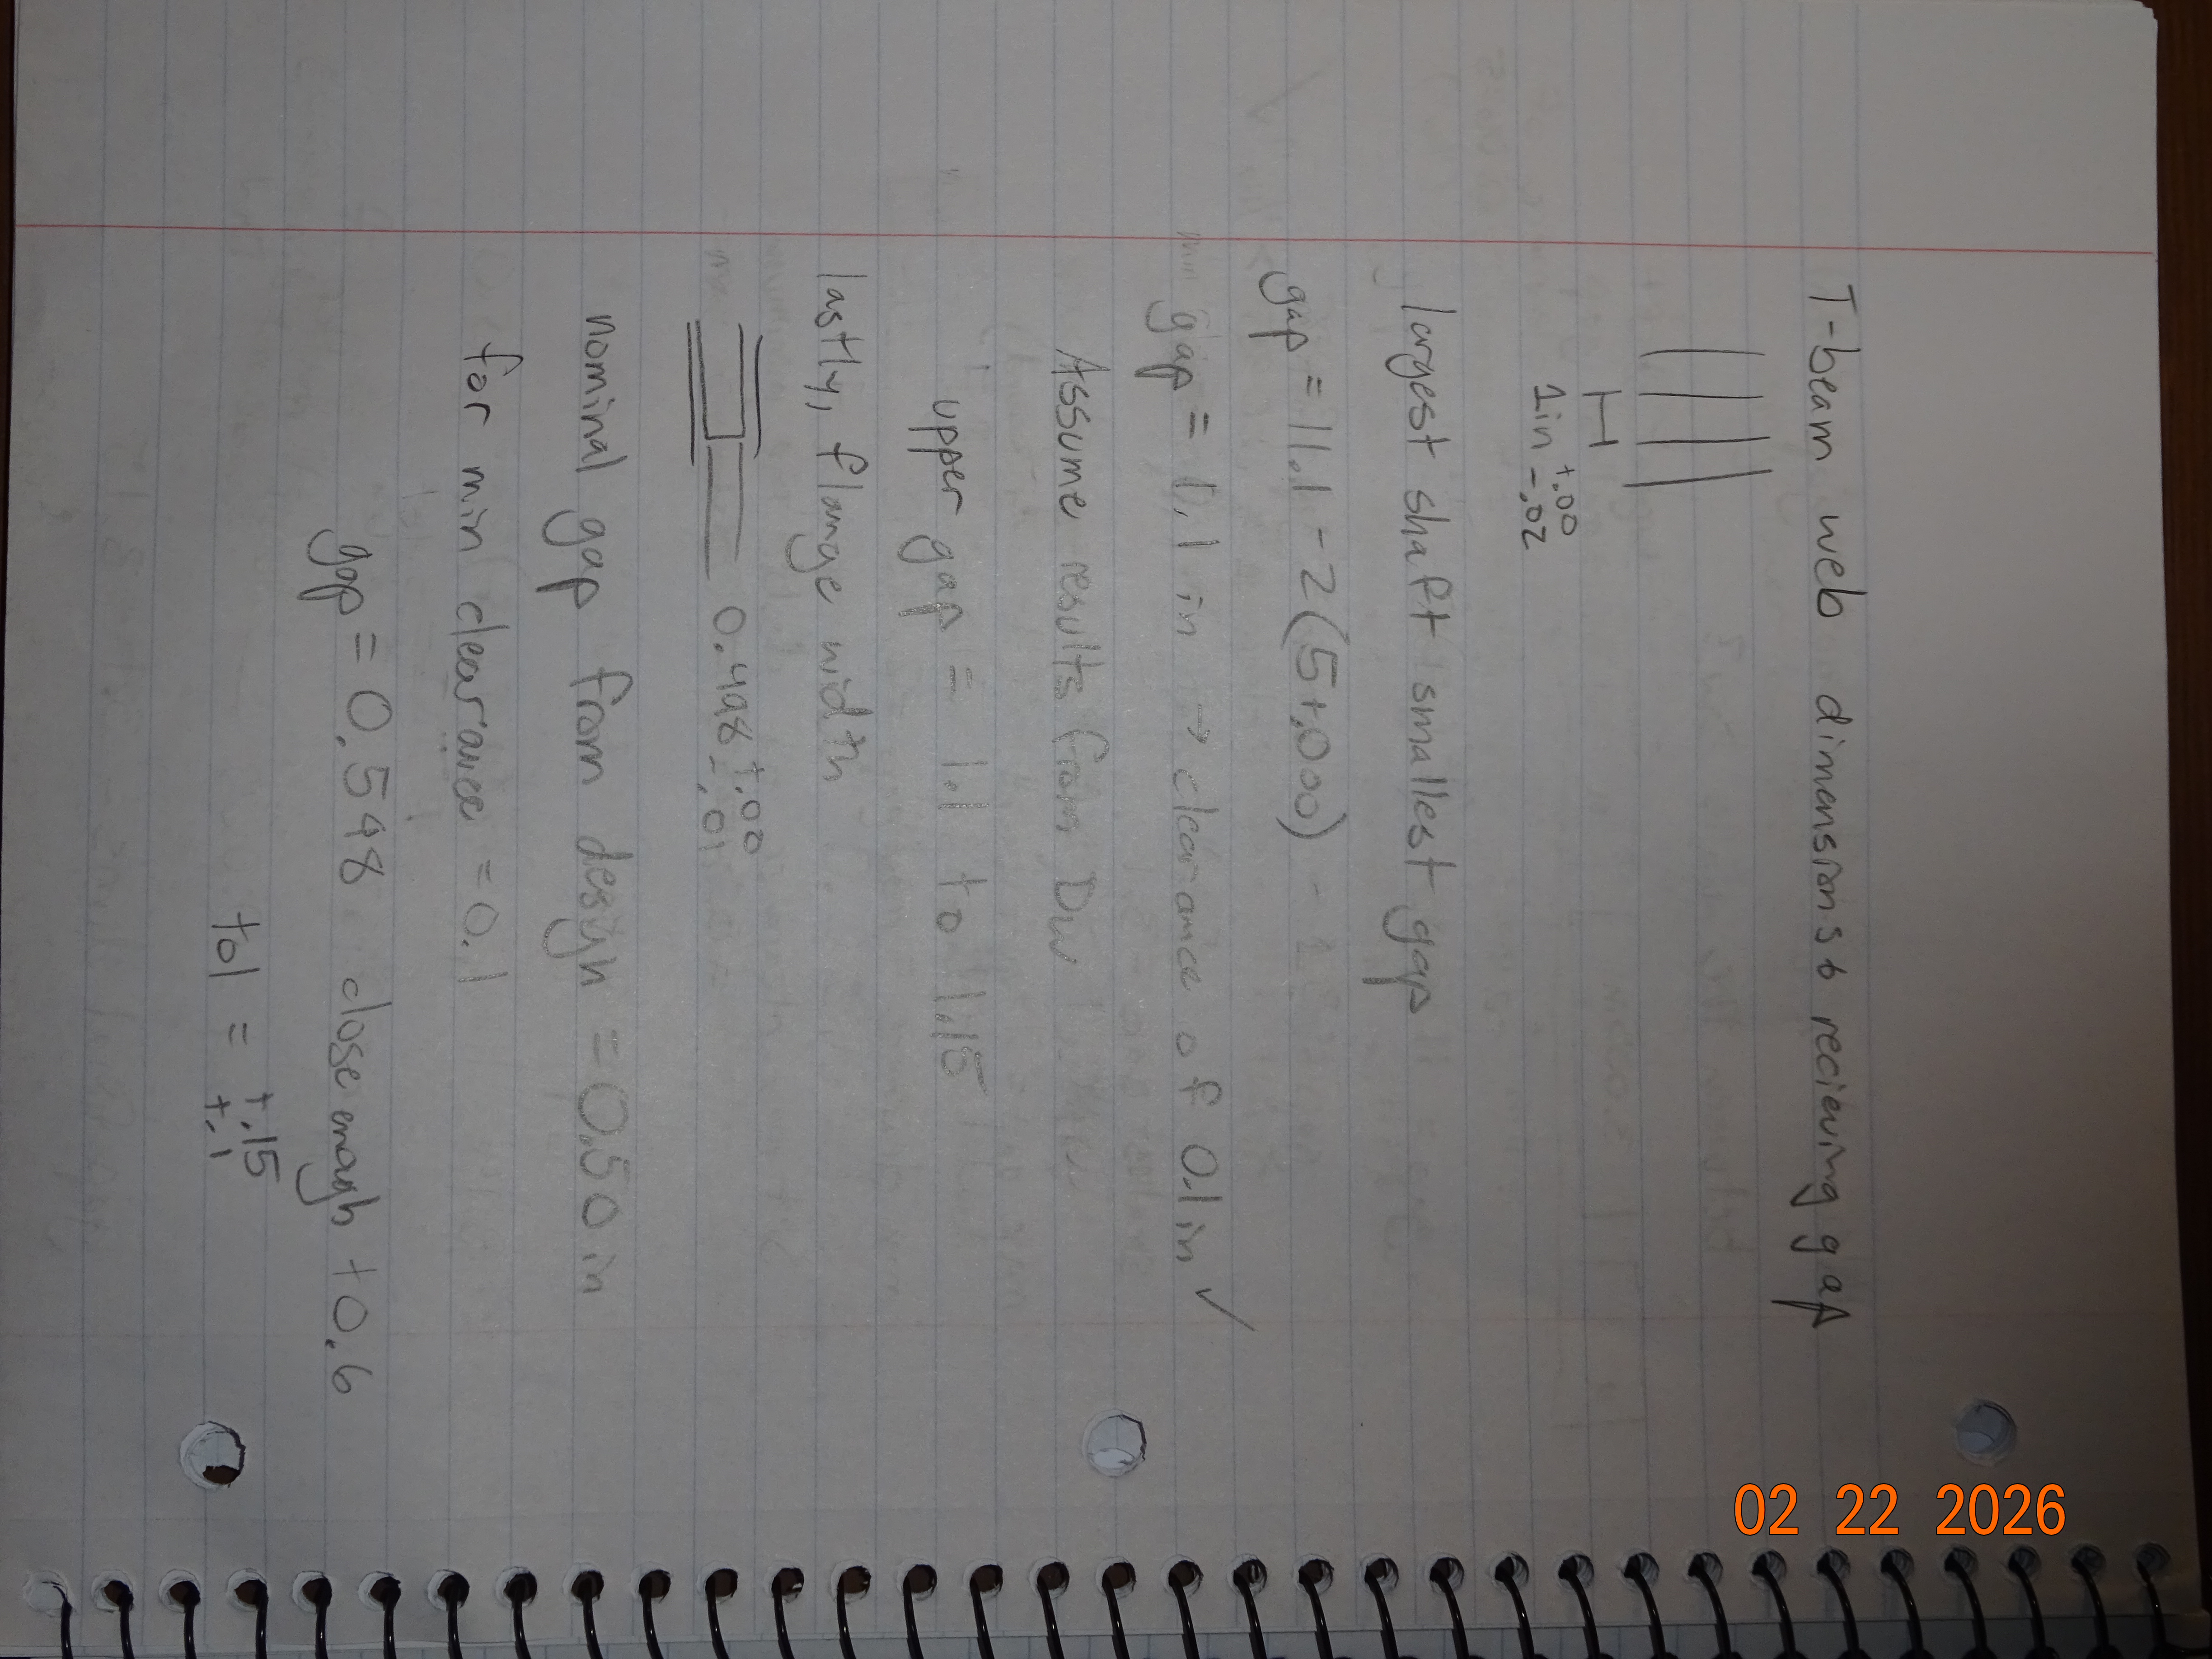 T-beam web dimensions & recieving gap
1in +.00 -.02
largest shaft smallest gap
gap = 11.1 - 2(5+.000)
gap = 1.1 in → clearance of 0.1 in ✓
Assume results from DW
upper gap = 1.1 to 1.15
lastly, flange width
0.498 +.00 -.01
nominal gap from design = 0.50 in
for min clearance = 0.1
gap = 0.548 close enough to 0.6
tol = +.15 +.1
02 22 2026